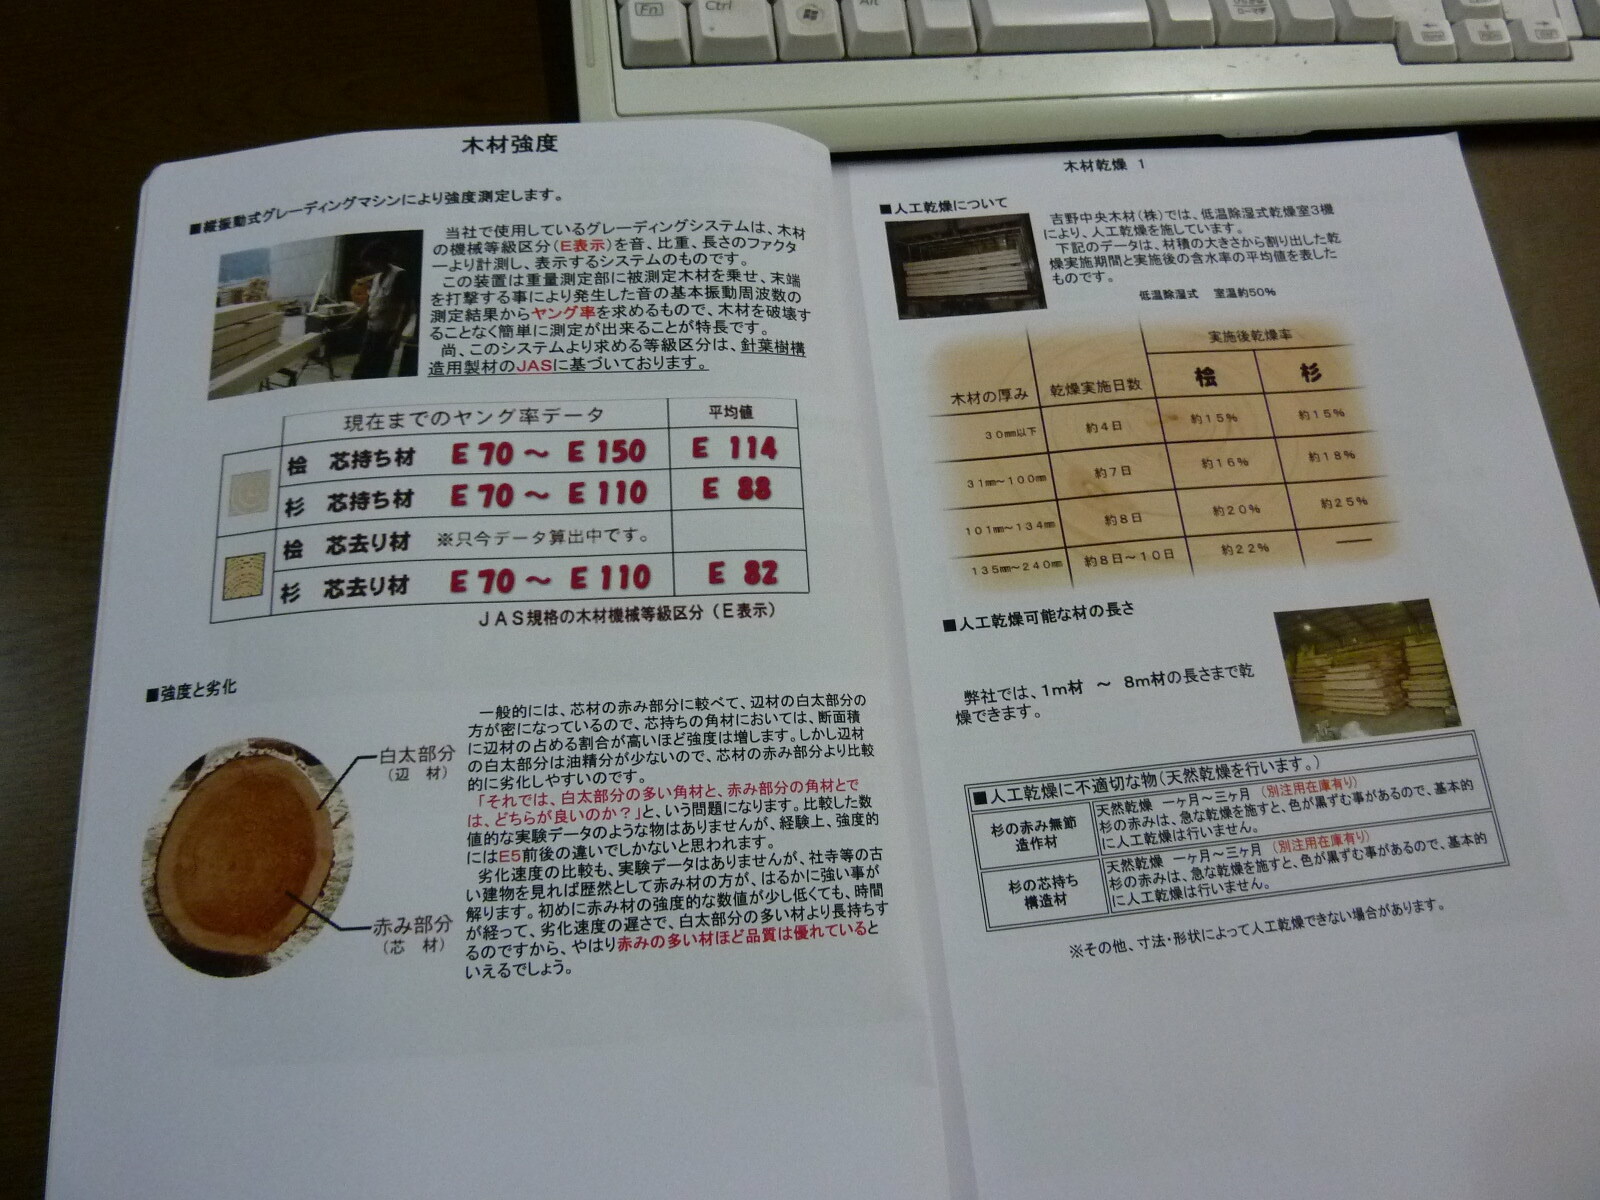 木材強度
■縦振動式グレーディングマシンにより強度測定します。
当社で使用しているグレーディングシステムは、木材
の機械等級区分(E表示)を音、比重、長さのファクタ
ーより計測し、表示するシステムのものです。
この装置は重量測定部に被測定木材を乗せ、末端
を打撃する事により発生した音の基本振動周波数の
測定結果からヤング率を求めるもので、木材を破壊す
ることなく簡単に測定が出来ることが特長です。
尚、このシステムより求める等級区分は、針葉樹構
造用製材のJASに基づいております。
現在までのヤング率データ 平均値
桧 芯持ち材 E 70 ～ E 150 E 114
杉 芯持ち材 E 70 ～ E 110 E 88
桧 芯去り材 ※只今データ算出中です。
杉 芯去り材 E 70 ～ E 110 E 82
JAS規格の木材機械等級区分(E表示)
■強度と劣化
白太部分
(辺 材)
赤み部分
(芯 材)
一般的には、芯材の赤み部分に較べて、辺材の白太部分の
方が密になっているので、芯持ちの角材においては、断面積
に辺材の占める割合が高いほど強度は増します。しかし辺材
の白太部分は油精分が少ないので、芯材の赤み部分より比較
的に劣化しやすいのです。
「それでは、白太部分の多い角材と、赤み部分の角材とで
は、どちらが良いのか？」と、いう問題になります。比較した数
値的な実験データのような物はありませんが、経験上、強度的
にはE5前後の違いでしかないと思われます。
劣化速度の比較も、実験データはありませんが、社寺等の古
い建物を見れば歴然として赤み材の方が、はるかに強い事が
解ります。初めに赤み材の強度的な数値が少し低くても、時間
が経って、劣化速度の遅さで、白太部分の多い材より長持ちす
るのですから、やはり赤みの多い材ほど品質は優れていると
いえるでしょう。
木材乾燥 1
■人工乾燥について
吉野中央木材(株)では、低温除湿式乾燥室3機
により、人工乾燥を施しています。
下記のデータは、材積の大きさから割り出した乾
燥実施期間と実施後の含水率の平均値を表した
ものです。
低温除湿式 室温約50%
木材の厚み 乾燥実施日数 実施後乾燥率
桧 杉
30㎜以下 約4日 約15% 約15%
31㎜～100㎜ 約7日 約16% 約18%
101㎜～134㎜ 約8日 約20% 約25%
135㎜～240㎜ 約8日～10日 約22% ――
■人工乾燥可能な材の長さ
弊社では、1m材 ～ 8m材の長さまで乾
燥できます。
■人工乾燥に不適切な物(天然乾燥を行います。)
杉の赤み無節
造作材
天然乾燥 一ヶ月～三ヶ月 (別注用在庫有り)
杉の赤みは、急な乾燥を施すと、色が黒ずむ事があるので、基本的
に人工乾燥は行いません。
杉の芯持ち
構造材
天然乾燥 一ヶ月～三ヶ月 (別注用在庫有り)
杉の赤みは、急な乾燥を施すと、色が黒ずむ事があるので、基本的
に人工乾燥は行いません。
※その他、寸法・形状によって人工乾燥できない場合があります。
Fn
Ctrl
Alt